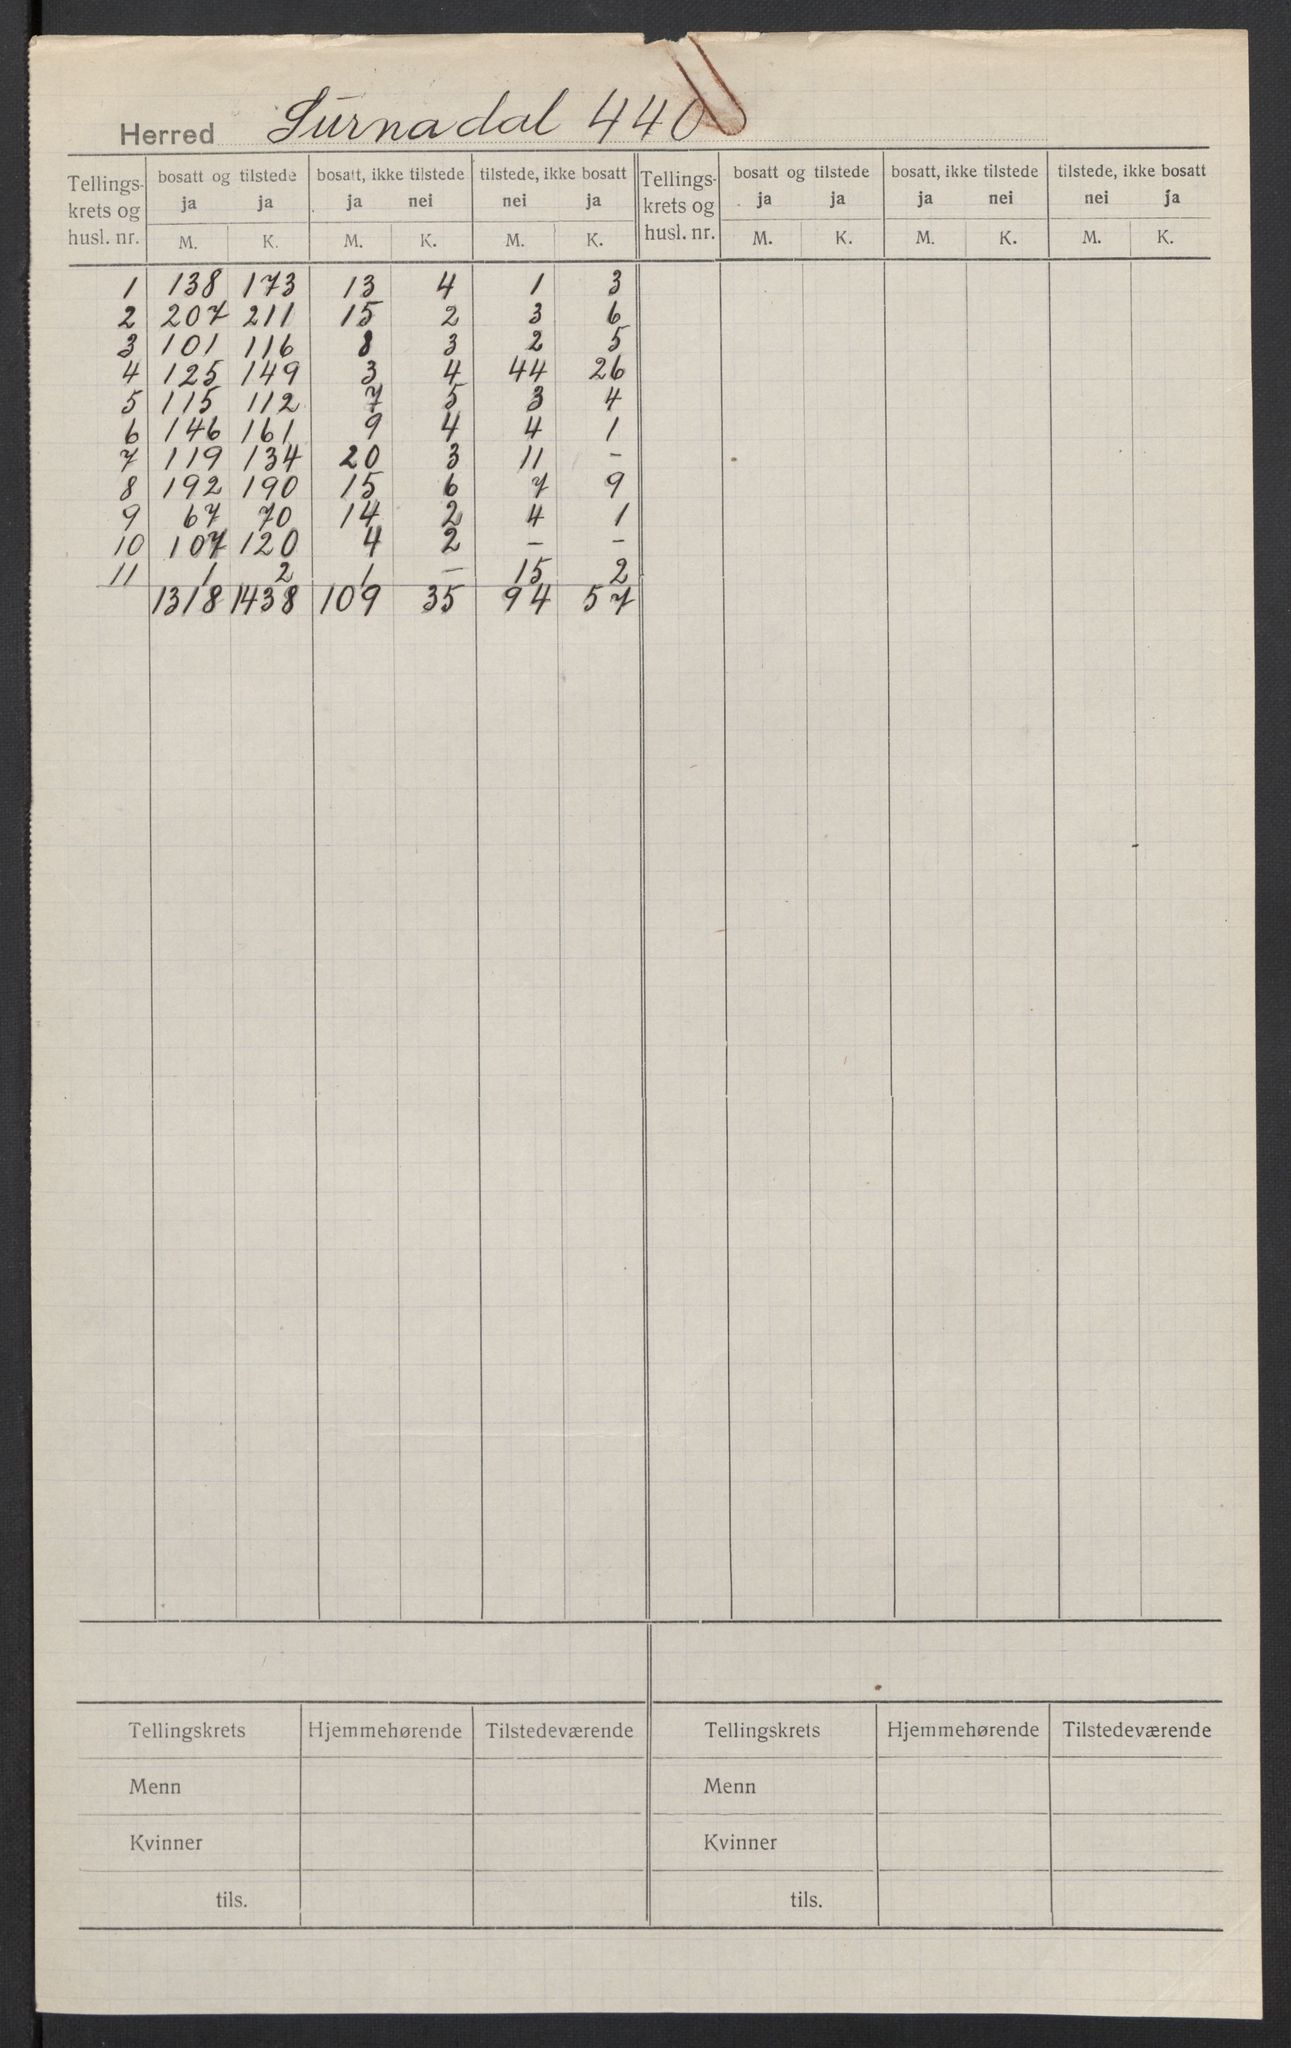 Herred Surnadal 440
Tellings-krets og husl. nr. | bosatt og tilstede ja ja | bosatt, ikke tilstede ja nei | tilstede, ikke bosatt nei ja | Tellings-krets og husl. nr. | bosatt og tilstede ja ja | bosatt, ikke tilstede ja nei | tilstede, ikke bosatt nei ja
M. K. M. K. M. K. M. K. M. K. M. K.
1 138 173 13 4 1 3
2 207 211 15 2 3 6
3 101 116 8 3 2 5
4 125 149 3 4 44 26
5 115 112 7 5 3 4
6 146 161 9 4 4 1
7 119 134 20 3 11 -
8 192 190 15 6 7 9
9 67 70 14 2 4 1
10 107 120 4 2 - -
11 1 2 1 - 15 2
1318 1438 109 35 94 57
Tellingskrets Hjemmehørende Tilstedeværende Tellingskrets Hjemmehørende Tilstedeværende
Menn Menn
Kvinner Kvinner
tils. tils.